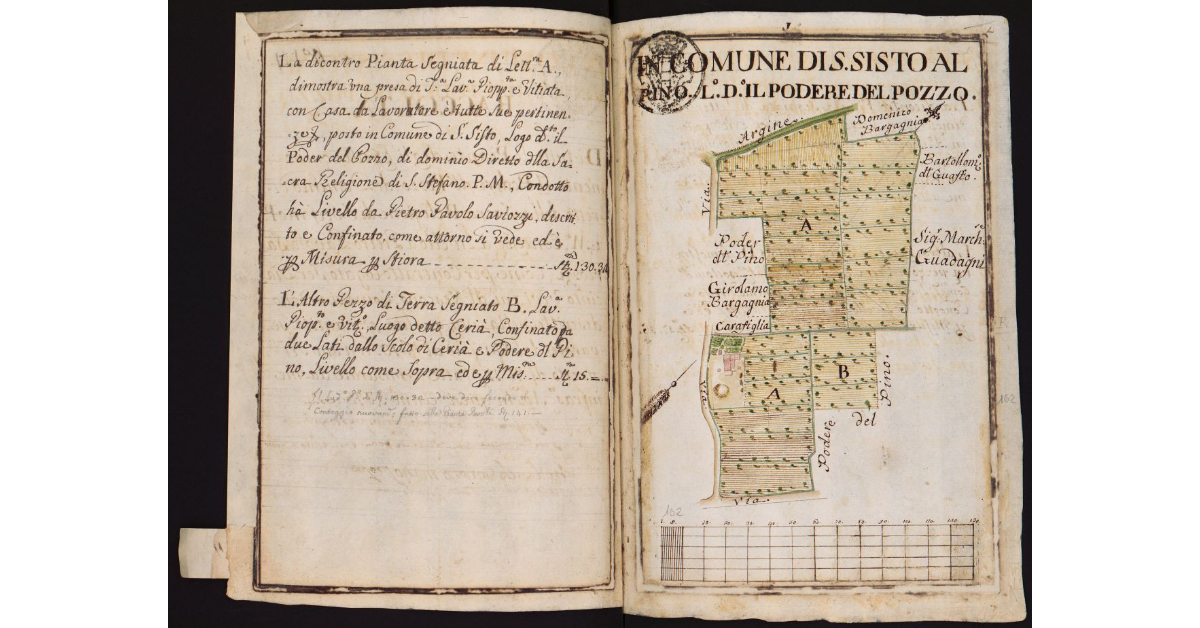 La dicontro Pianta Segniata di Lett.ª A.,
dimostra vna presa di T.ª Lav.ª Piopp.ª e Vitiata
con Casa da Lavoratore e tutte sue pertinen-
ze, posto in Comune di S. Sisto, Logo d.to il
Poder del Pozzo, di dominio Diretto dlla Sa-
cra Religione di S. Stefano. P. M., Condotto
hà Livello da Pietro Pavolo Saviozzi, descrit
to e Confinato, come attorno si vede ed è
Misura Stiora 130.34
L'Altro Pezzo di Terra Segniato B. Lav.ª
Piop.ª e Vit.ª, Luogo detto Ceria, Confinato da
due Lati dallo Scolo di Ceria e Podere dl Pi-
no, Livello come Sopra ed e Mis. 15.
1.
IN COMUNE DI S. SISTO AL
PINO. L.º D.º IL PODERE DEL POZZO.
Argine.
Domenico
Bargagnia
Bartollom.º
dl Guasto.
Via.
A
Poder
dl Pino
Sig.r March.
Guadagni
Girolamo
Bargagnia
Carafiglia
B
A
Via
Podere
del
Pino.
Via.
102
162